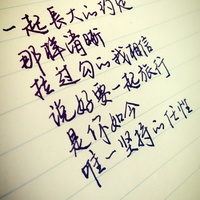 一起長大的约定
那样清晰
拉过勾的我相信
说好要一起旅行
是你如今
唯一坚持的任性